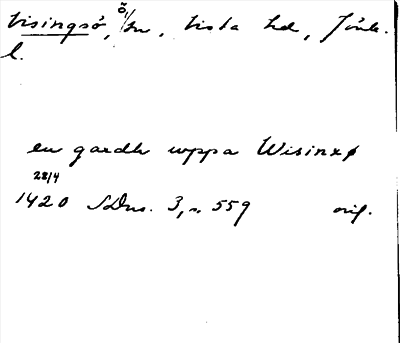 Visingsö, ö, sn, Vista hd, Jönk.
l.
en gardh uppa Wisinxø
28/4
1420 SDns. 3, s. 559 orig.